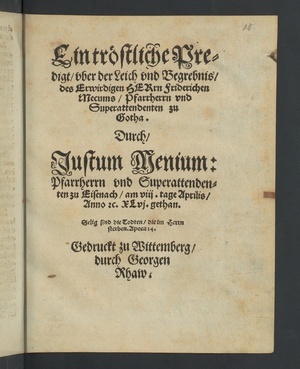 Ein tröstliche Pre-
digt/ vber der Leich vnd Begrebnis/
des Erwirdigen HERrn Friderichen
Mecums/ Pfarrherrn vnd
Superattendenten zu
Gotha.
Durch/
Justum Menium:
Pfarrherrn vnd Superattenden-
ten zu Eisenach/ am viij. tage Aprilis/
Anno ꝛc. XLvj. gethan.
Selig sind die Todten/ die im Herrn
sterben. Apoca 14.
Gedruckt zu Wittemberg/
durch Georgen
Rhaw.